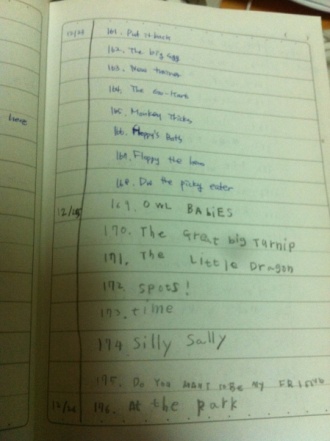 12/24 161. Put it back
162. The big egg
163. New trainers
164. The Go-kart
165. Monkey Tricks
166. Floppy's Bath
167. Floppy the hero
168. Dw the picky eater
12/25 169. OWL BABIES
170. The Great big Turnip
171. The Little Dragon
172. Spots!
173. time
174 Silly Sally
175. Do You Want to Be My FRIEND
12/26 176. At the park